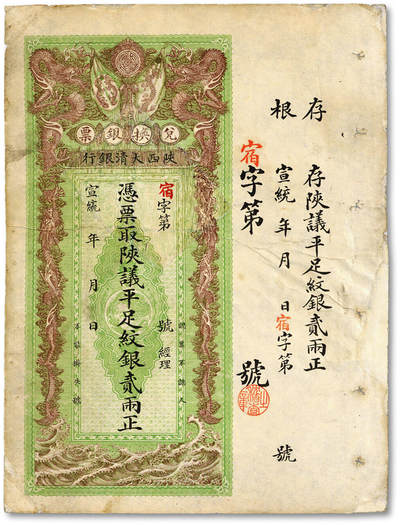 存根
存陝議平足紋銀貳兩正
宣統 年 月 日 宿字第 號
宿字第 號
兌換銀票
陝西大清銀行
宿字第 號 經理
憑票取陝議平足紋銀貳兩正
宣統 年 月 日